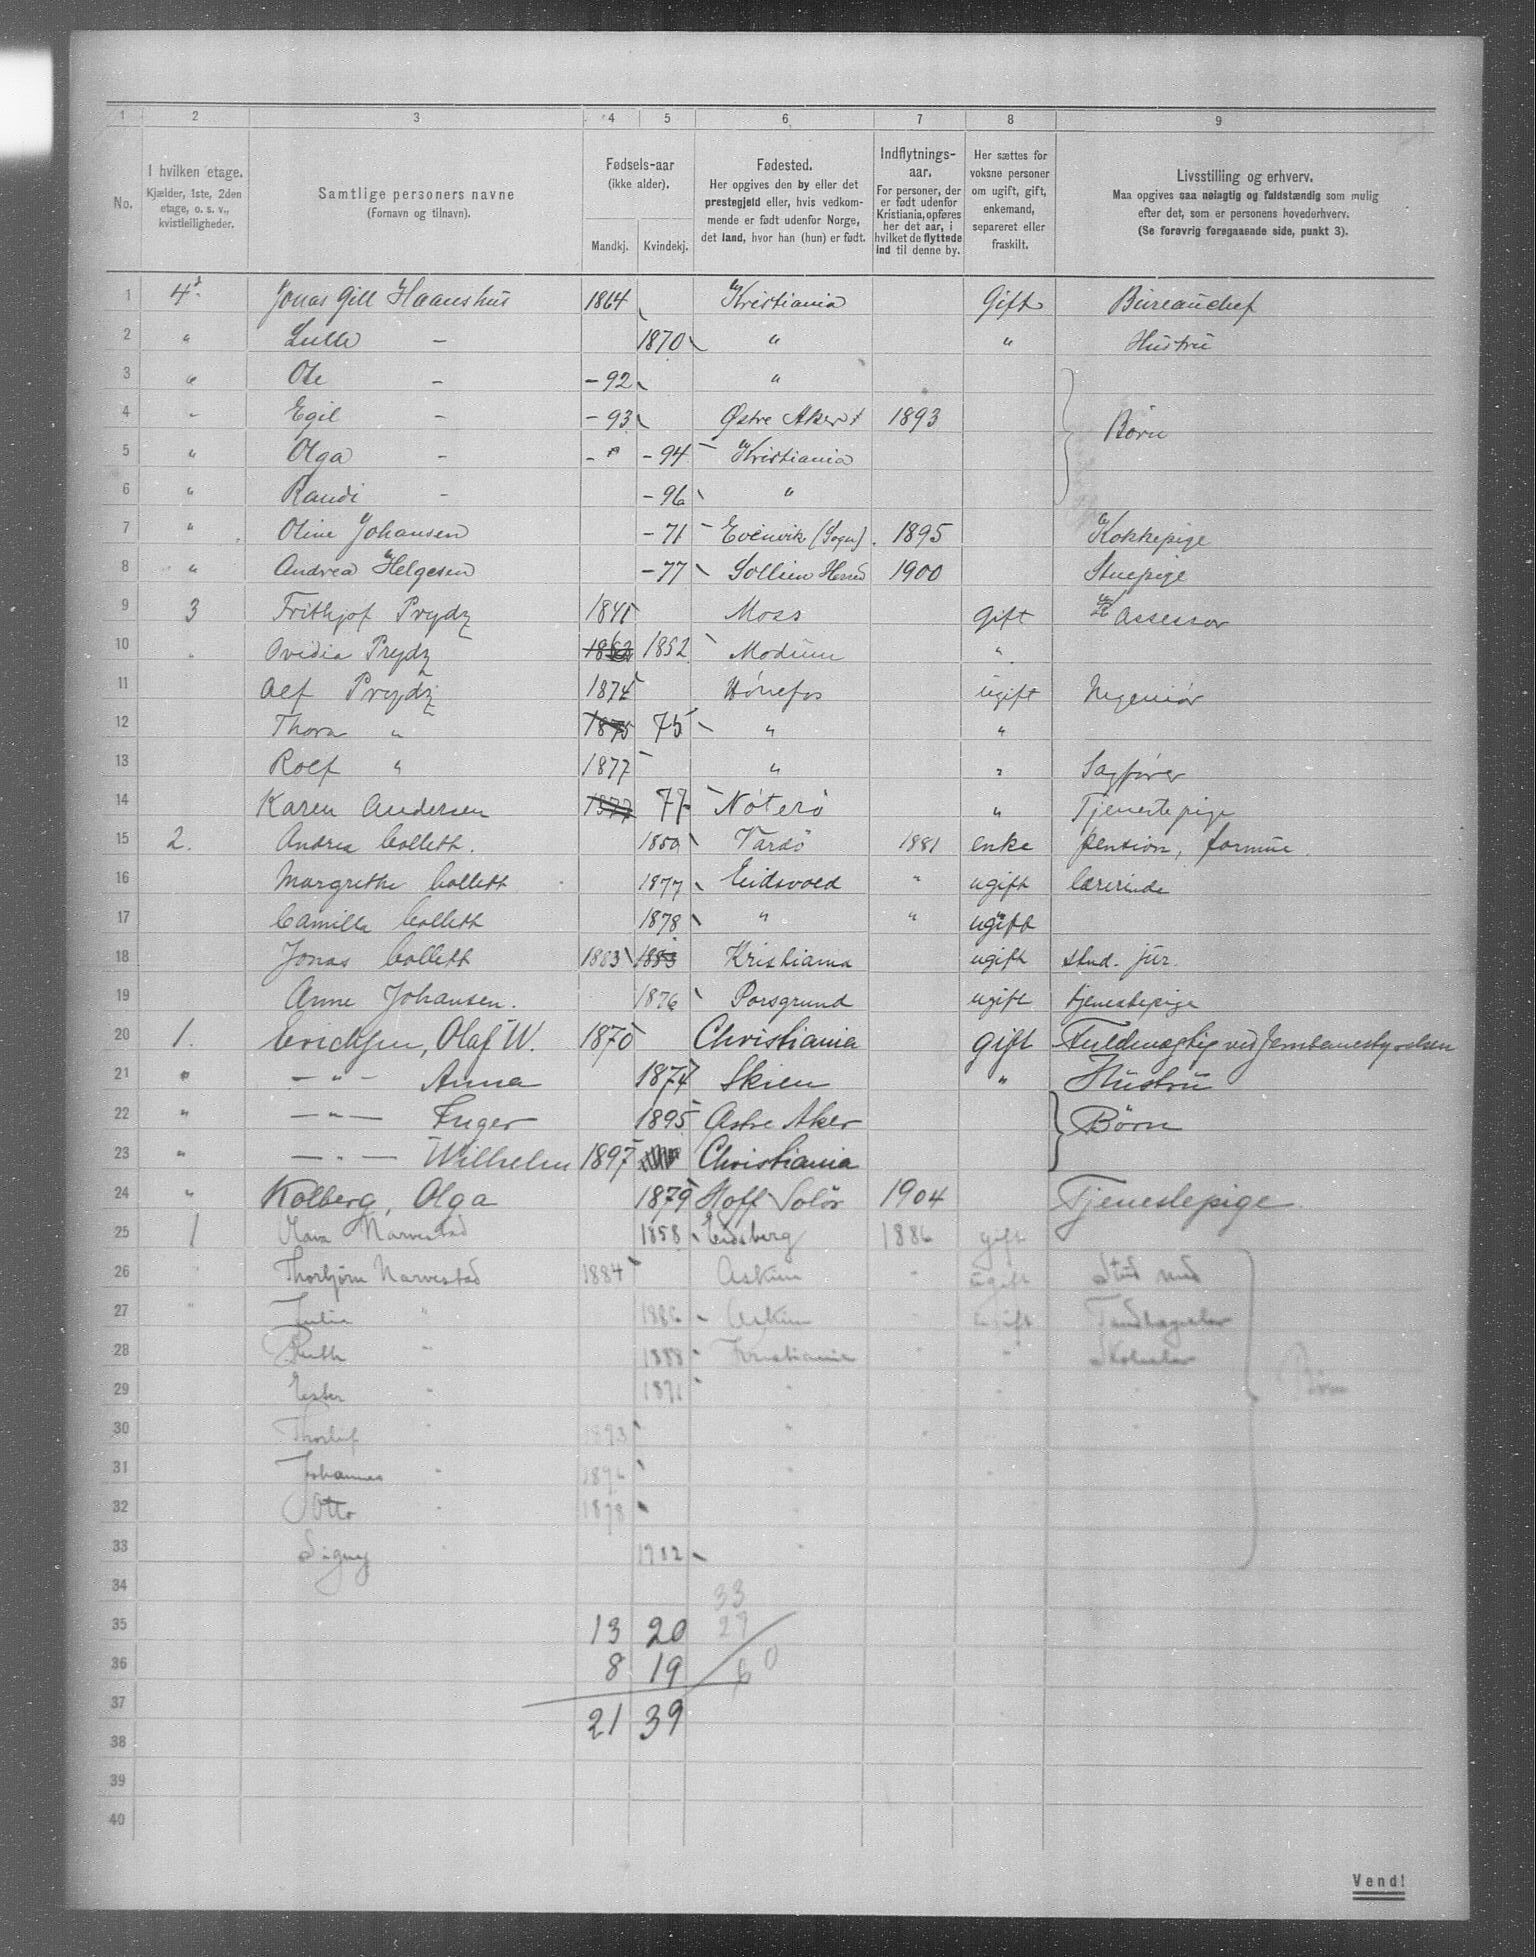 1 2 3 4 5 6 7 8 9
No.
I hvilken etage.
Kjælder, 1ste, 2den
etage, o. s. v.,
kvistleiligheder.
Samtlige personers navne
(Fornavn og tilnavn).
Fødsels-aar
(ikke alder).
Mandkj. Kvindekj.
Fødested.
Her opgives den by eller det
prestegjeld eller, hvis vedkom-
mende er født udenfor Norge,
det land, hvor han (hun) er født.
Indflytnings-
aar.
For personer, der
er født udenfor
Kristiania, opføres
her det aar, i
hvilket de flyttede
ind til denne by.
Her sættes for
voksne personer
om ugift, gift,
enkemand,
separeret eller
fraskilt.
Livsstilling og erhverv.
Maa opgives saa nøiagtig og fuldstændig som mulig
efter det, som er personens hovederhverv.
(Se forøvrig foregaaende side, punkt 3).
1 4d. Jonas Gill Haanshus 1864 Kristiania Gift Bureauchef
2 " Lulle - 1870 " " Hustru
3 " Ole - - 92 "
4 " Egil - - 93 Østre Aker 1893 Børn
5 " Olga - - 94 Kristiania
6 " Randi - - 96 "
7 " Oline Johansen - 71 Evenvik (Sogn) 1895 Kokkepige
8 " Andrea Helgesen - 77 Sollien Herred 1900 Stuepige
9 3 Frithjof Prydz 1841 Moss gift Assessor
10 Ovidia Prydz 1852 Modum "
11 Alf Prydz 1874 Hönefos ugift Ingeniör
12 Thora " 1875 75 " "
13 Rolf " 1877 " " Sagfører
14 Karen Andersen 1877 77 Nøterö " Tjenestepige
15 2. Andrea Collett. 1850 Vardö 1881 enke pension, formue.
16 Margrethe Collett 1877 Eidsvold " ugift lærerinde
17 Camilla Collett 1878 " " ugift
18 Jonas Collett 1883 1883 Kristiania ugift stud. jur.
19 Anne Johansen. 1876 Porsgrund ugift tjenestepige
20 1. Erichsen, Olaf W. 1870 Christiania gift Fuldmægtig ved Jernbanestyrelsen
21 " - " - Anna 1874 Skien " Hustru
22 " - " - Inger 1895 Østre Aker Børn
23 " - " - Wilhelm 1897 Christiania
24 " Kolberg, Olga 1879 Hoff Solör 1904 Tjenestepige
25 1 Narvestad 1858 Eidsberg 1886 gift
26 Thorbjörn Narvestad 1884 Askim " ugift Stud med
27 " Julie " 1886 Askim " ugift
28 Ruth " 1888 Kristiania " " Skoleelev
29 Ester " 1891 " Børn
30 Thorleif " 1893 "
31 Johannes " "
32 Otto " "
33 Signy " 1902 "
34 33
35 13 20 27
36 8 19 60
37 21 39
38
39
40
Vend!